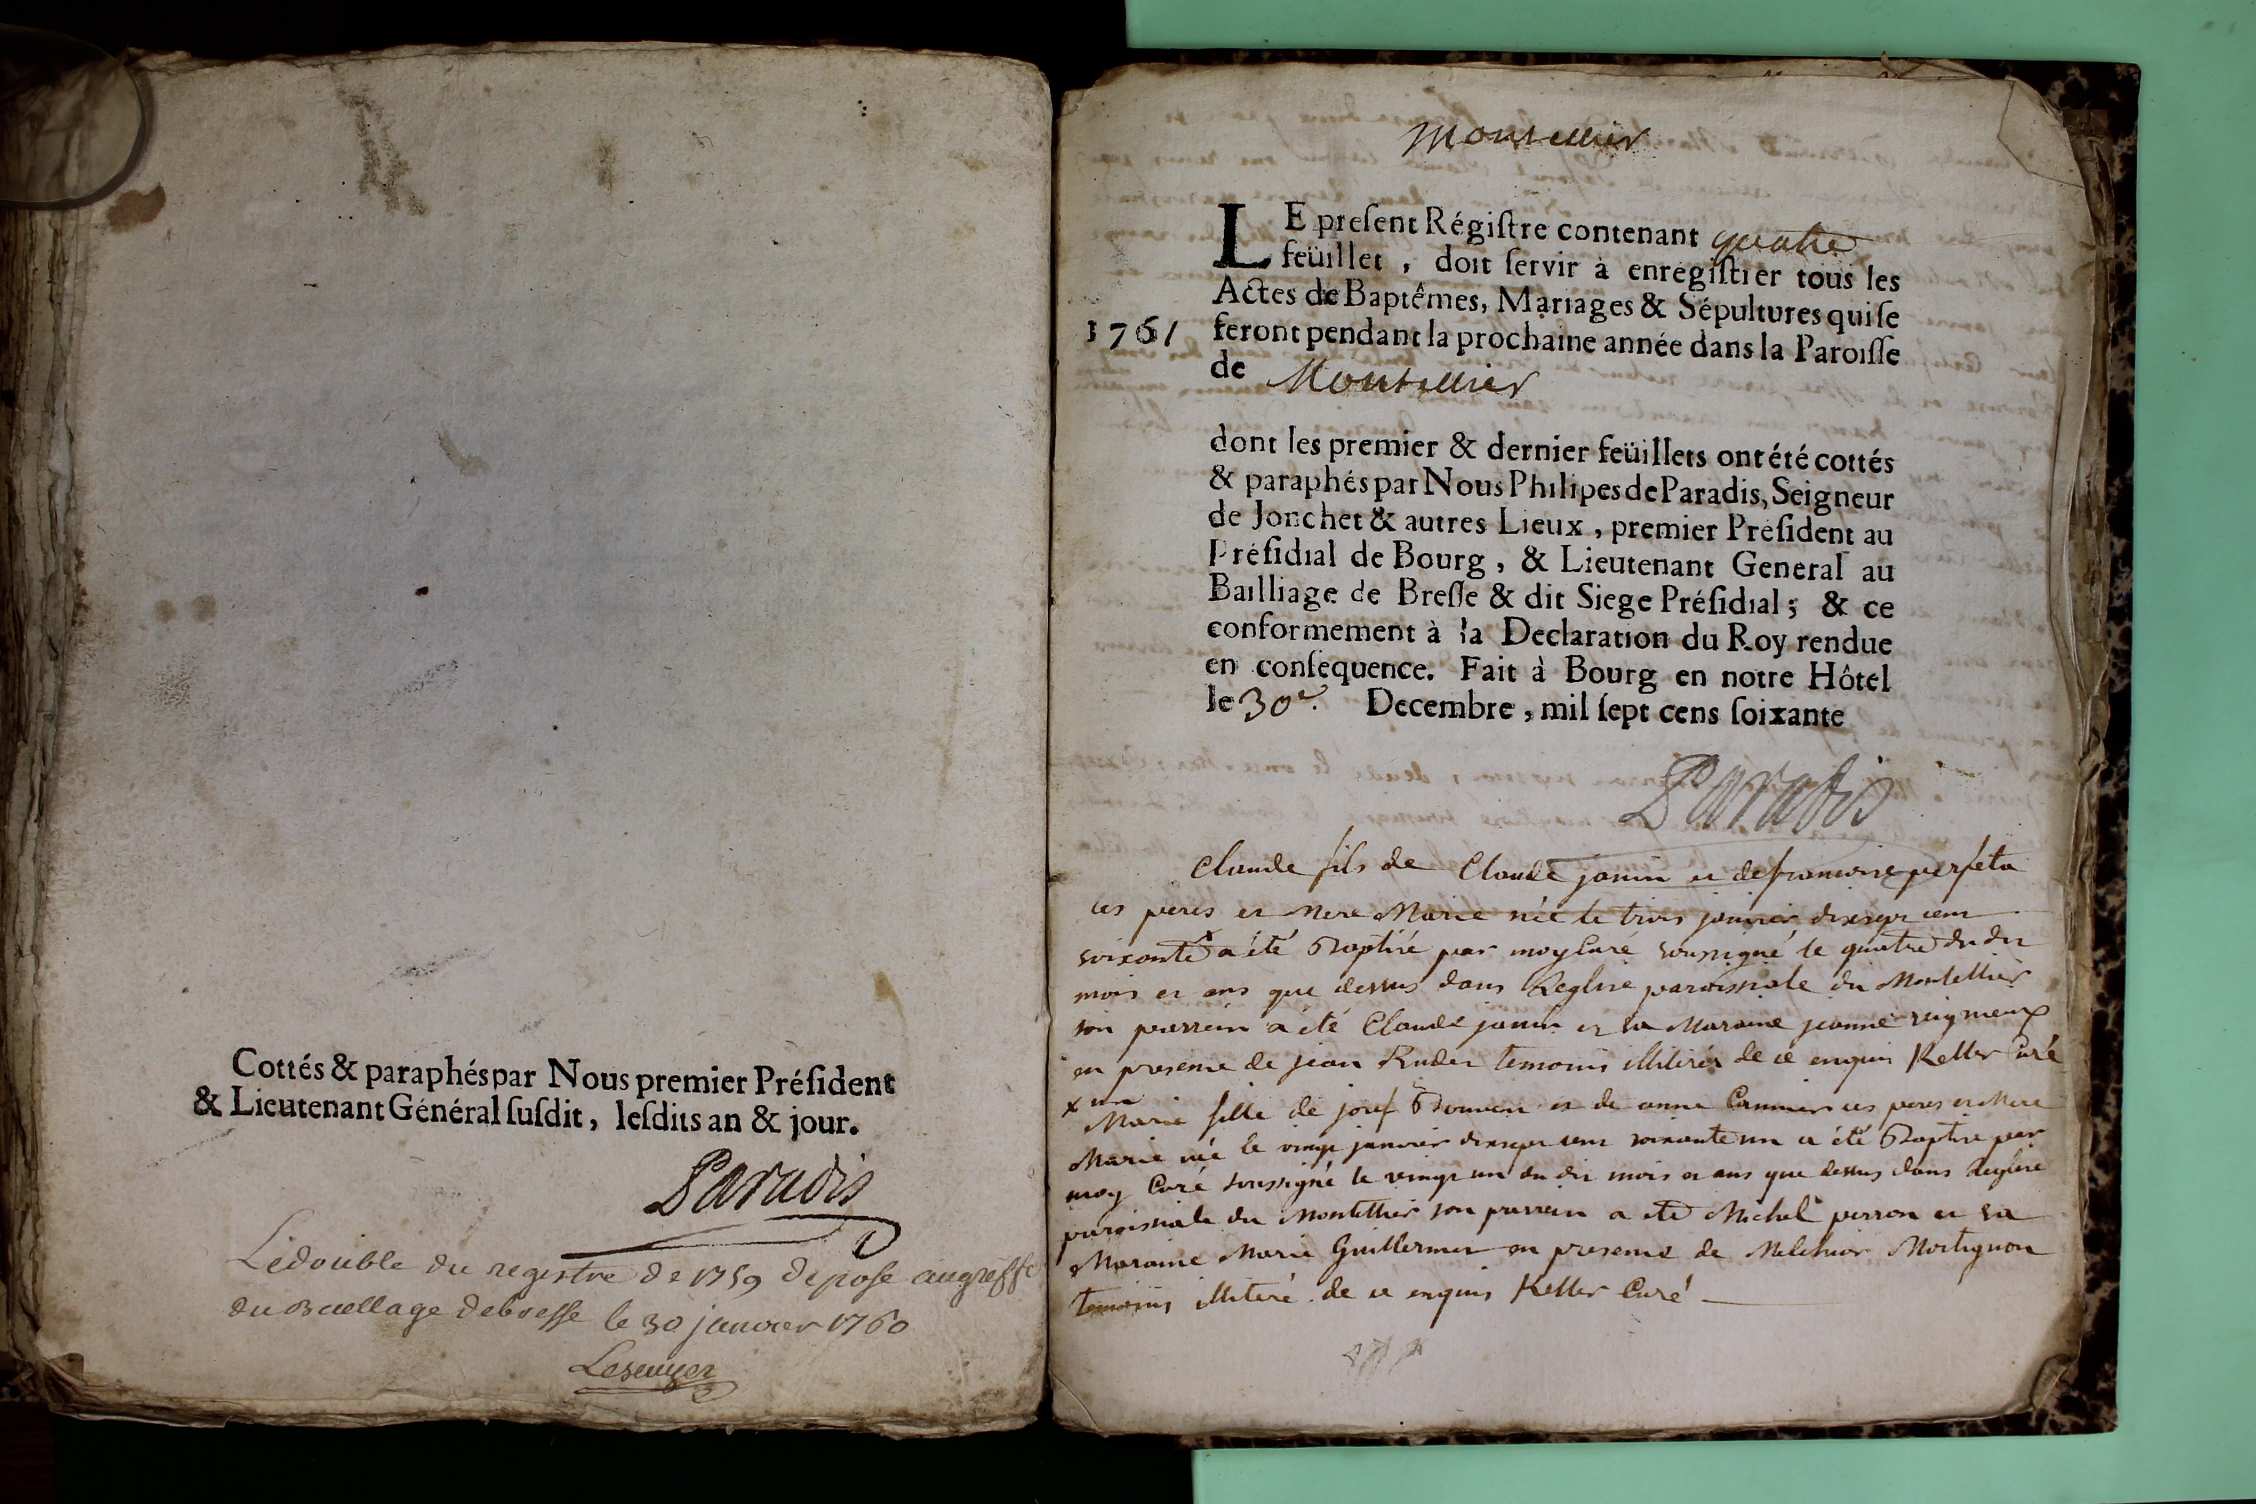 Cottés & paraphés par Nous premier Préſident
& Lieutenant Général ſuſdit, leſdits an & jour.
Paradis
Ledouble du registre de 1759 depose augreffe
du Baellage debresse le 30 janvier 1760
Montellier
LE preſent Régiſtre contenant quatre
feüillet, doit ſervir à enregiſtrer tous les
Actes de Baptêmes, Mariages & Sépultures qui ſe
1761 feront pendant la prochaine année dans la Paroiſſe
de Montellier
dont les premier & dernier feüillets ont été cottés
& paraphés par Nous Philipes de Paradis, Seigneur
de Jonchet & autres Lieux, premier Préſident au
Préſidial de Bourg, & Lieutenant General au
Bailliage de Breſſe & dit Siege Préſidial; & ce
conformement à la Declaration du Roy rendue
en conſequence. Fait à Bourg en notre Hôtel
le 30e. Decembre, mil ſept cens ſoixante
Paradis
Claude fils de Claude janin et de francoise perfeta
ces peres et Mere Marie née le trois janvier dixsept cent
soixante x a été Baptisé par moy Curé soussigné le quatre du dit
mois et ans que dessus dans Leglise paroissiale du Montellier
son parrein a été Claude janin et sa Maraine jeanne
en presence de jean temoins illiterés de ce enquis Keller Curé
x un
Marie fille de josef et de anne ces peres et Mere
Marie née le vingt janvier dixsept cent soixante un a été Baptise par
moy Curé soussigné le vingt un du dit mois et ans que dessus dans Leglise
paroissiale du Montellier son parrein a été Michel perron et sa
Maraine Marie Guillermet en presence de Melchior Mortignon
temoins illiteré de ce enquis Keller Curé